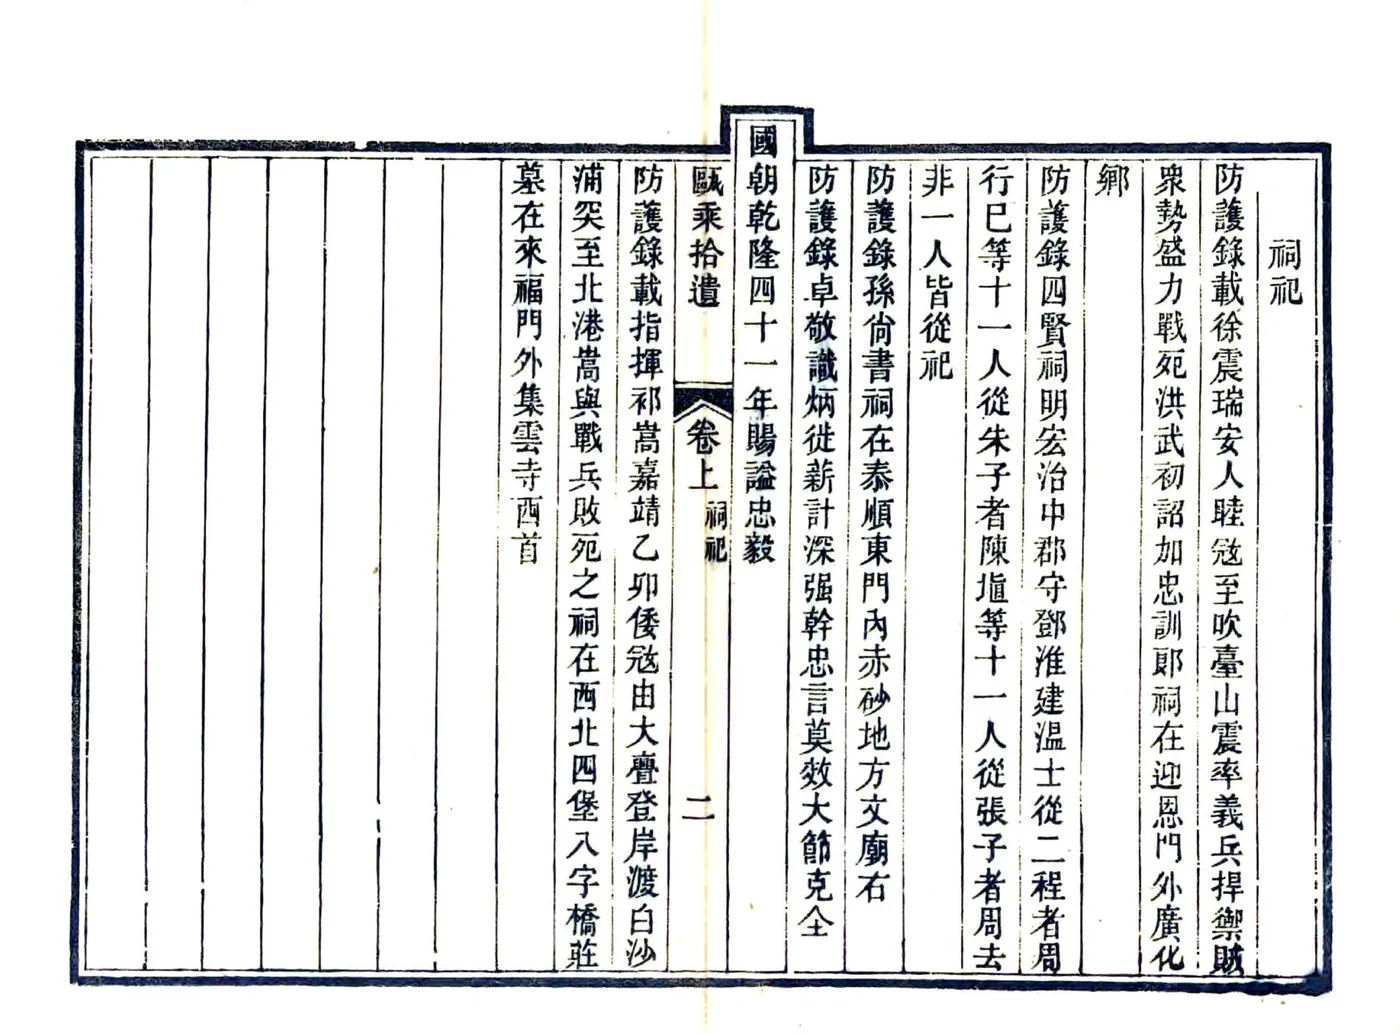 祠祀
防護錄載徐震瑞安人睦宼至吹臺山震率義兵捍禦賊
衆勢盛力戰死洪武初詔加忠訓郞祠在迎恩門外廣化
鄕
防護錄四賢祠明宏治中郡守鄧淮建温士從二程者周
行巳等十一人從朱子者陳埴等十一人從張子者周去
非一人皆從祀
防護錄孫尙書祠在泰順東門內赤砂地方文廟右
防護錄卓敬識炳徙薪計深强幹忠言莫效大節克全
國朝乾隆四十一年賜謚忠毅
甌乘拾遺 卷上 祠祀 二
防護錄載指揮祁嵩嘉靖乙卯倭宼由大舋登岸渡白沙
浦突至北港嵩與戰兵敗死之祠在西北四堡八字橋莊
墓在來福門外集雲寺西首